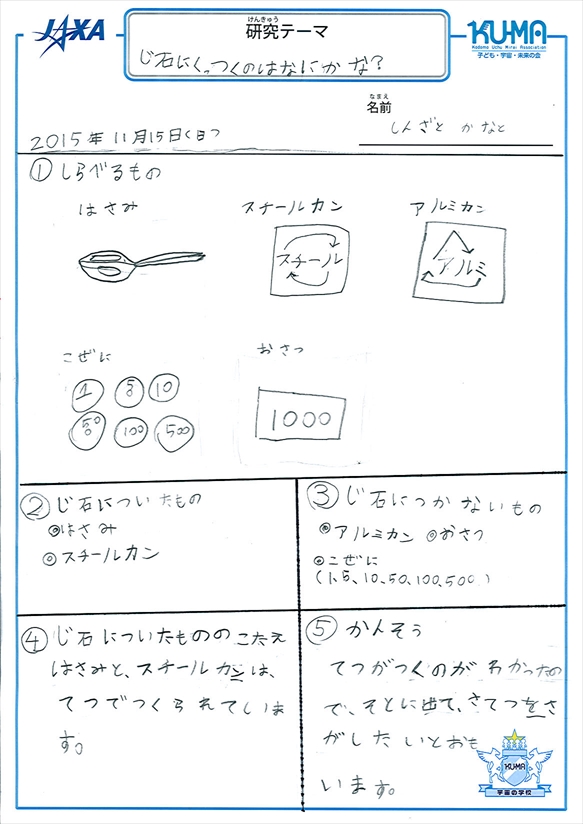 JAXA
けんきゅう
研究テーマ
じ石にくっつくのはなにかな?
KU-MA
Kodomo Uchu Mirai Association
子ども・宇宙・未来の会
なまえ
名前
しんざと かなと
2015年11月15日(日)
①しらべるもの
はさみ
スチールカン
アルミカン
スチール
アルミ
こぜに
おさつ
1 5 10
50 100 500
1000
②じ石についたもの
◎はさみ
◎スチールカン
③じ石につかないもの
◎アルミカン ◎おさつ
◎こぜに
(1、5、10、50、100、500)
④じ石についたもののこたえ
はさみと、スチールカンは、
てつでつくられていま
す。
⑤かんそう
てつがつくのがわかったの
で、そとに出て、さてつをさ
がしたいとおも
います。
KU-MA
宇宙の学校